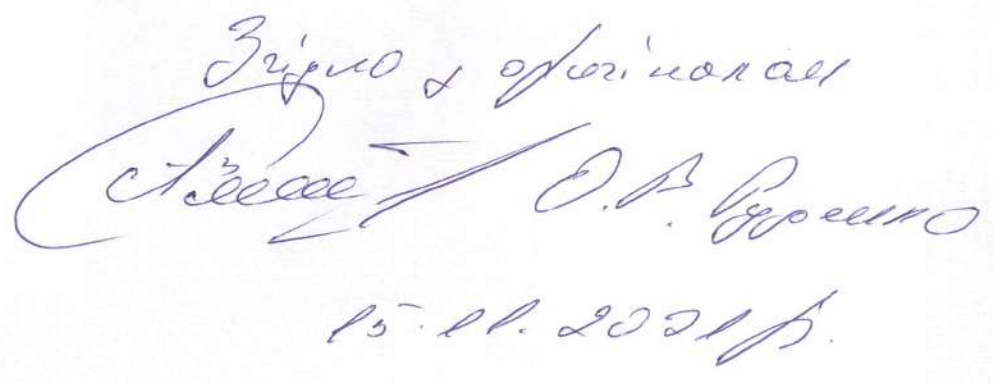 Згідно з оригіналом
О.В. Руденко
15.11.2021 р.